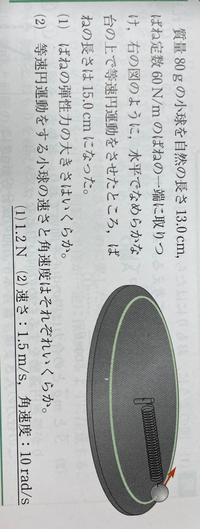 質量 80 g の小球を自然の長さ 13.0 cm,
ばね定数 60 N/m のばねの一端に取りつ
け,右の図のように,水平でなめらかな
台の上で等速円運動をさせたところ,ば
ねの長さは 15.0 cm になった。
(1) ばねの弾性力の大きさはいくらか。
(2) 等速円運動をする小球の速さと角速度はそれぞれいくらか。
(1) 1.2 N (2) 速さ:1.5 m/s, 角速度:10 rad/s